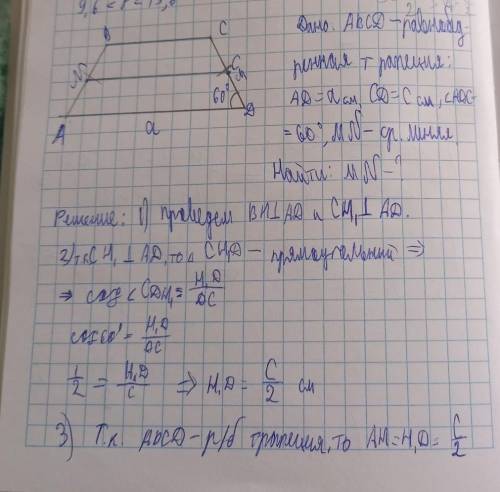 9,6 < r <
B
C
N
C
M
60°
A
D
a
Дано: ABCD – равнобед
ренная трапеция:
AD = a см, CD = C см, ∠ADC
= 60°, MN – ср. линия
Найти: MN – ?
Решение: 1) проведем BH⊥AD и CH₁⊥AD.
2) т.к CH₁⊥AD, то △ CH₁D – прямоугольный ⇒
⇒ cos ∠CDH₁ = H₁D/DC
cos 60° = H₁D/DC
1/2 = H₁D/C ⇒ H₁D = C/2 см
3) Т.к. ABCD – р/б трапеция, то AH = H₁D = C/2